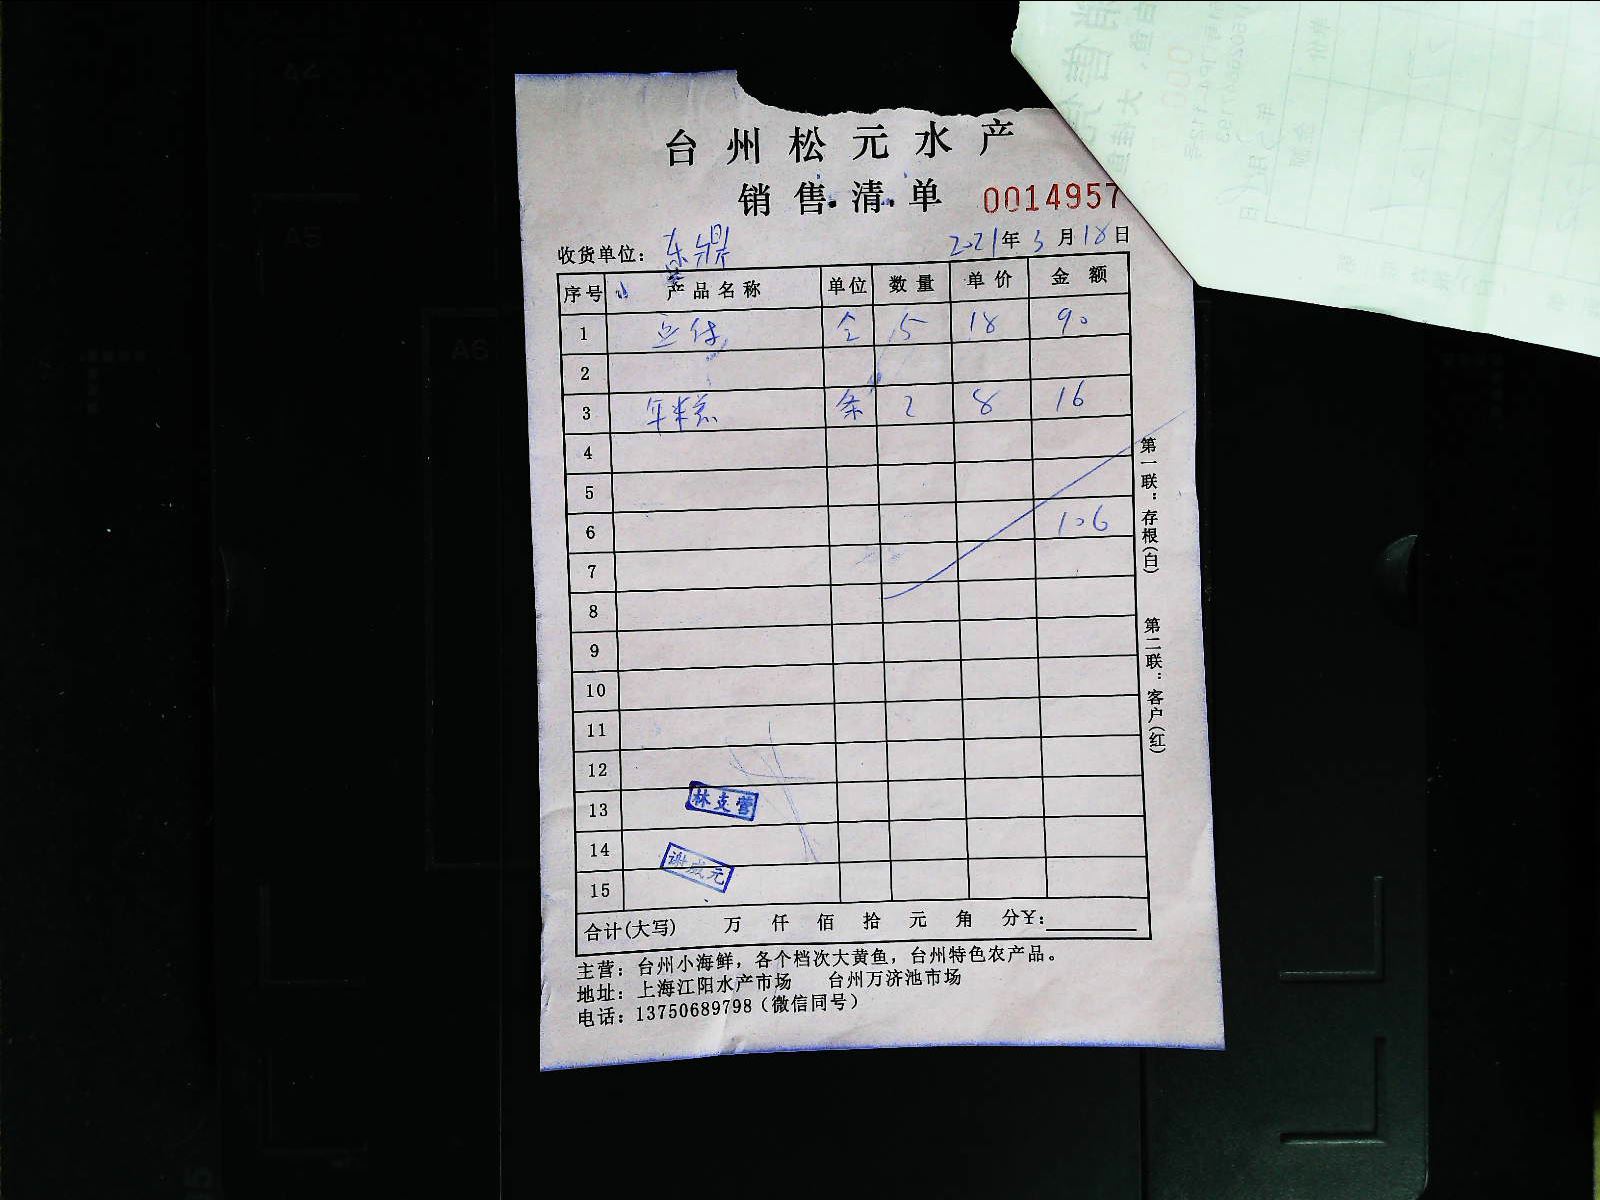 台州松元水产
销售清单 0014957
收货单位: 东鼎 2021年3月18日
序号 产品名称 单位 数量 单价 金额
1 5 18 90
2
3 条 2 8 16
4
5
6 106
7
8
9
10
11
12
13
14
15
林支营
谢咸元
合计(大写) 万 仟 佰 拾 元 角 分¥:
主营: 台州小海鲜, 各个档次大黄鱼, 台州特色农产品。
地址: 上海江阳水产市场 台州万济池市场
电话: 13750689798 (微信同号)
第一联: 存根(白)
第二联: 客户(红)